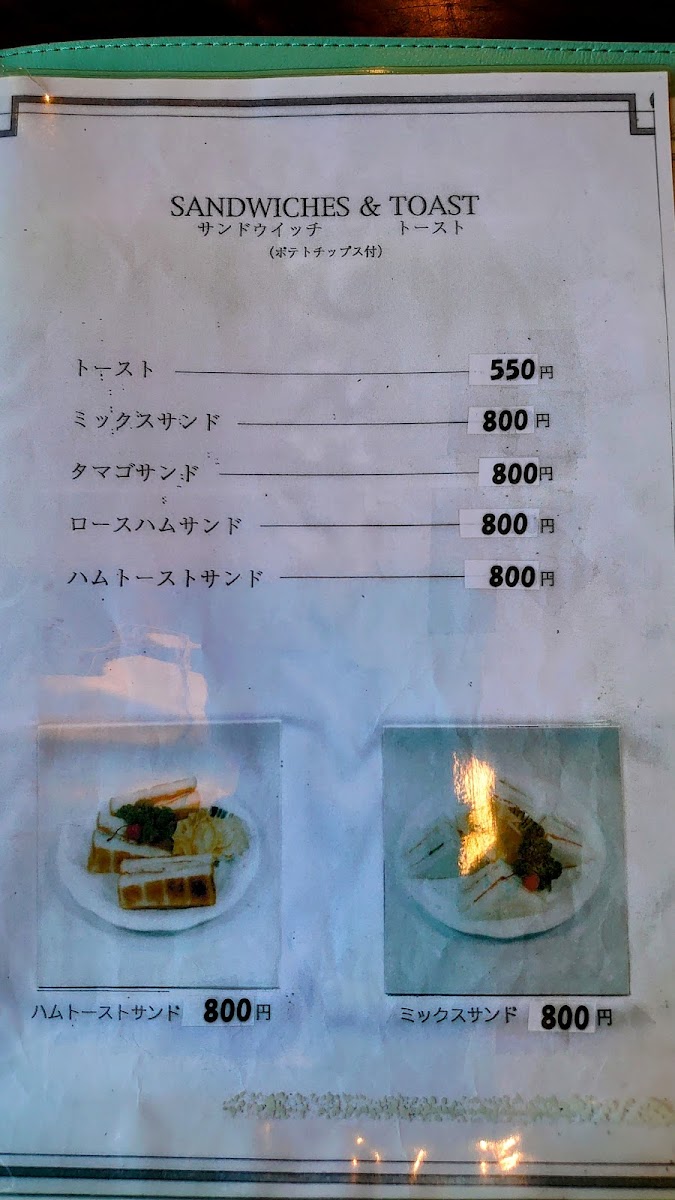 SANDWICHES & TOAST
サンドウイッチ トースト
(ポテトチップス付)
トースト 550円
ミックスサンド 800円
タマゴサンド 800円
ロースハムサンド 800円
ハムトーストサンド 800円
ハムトーストサンド 800円
ミックスサンド 800円